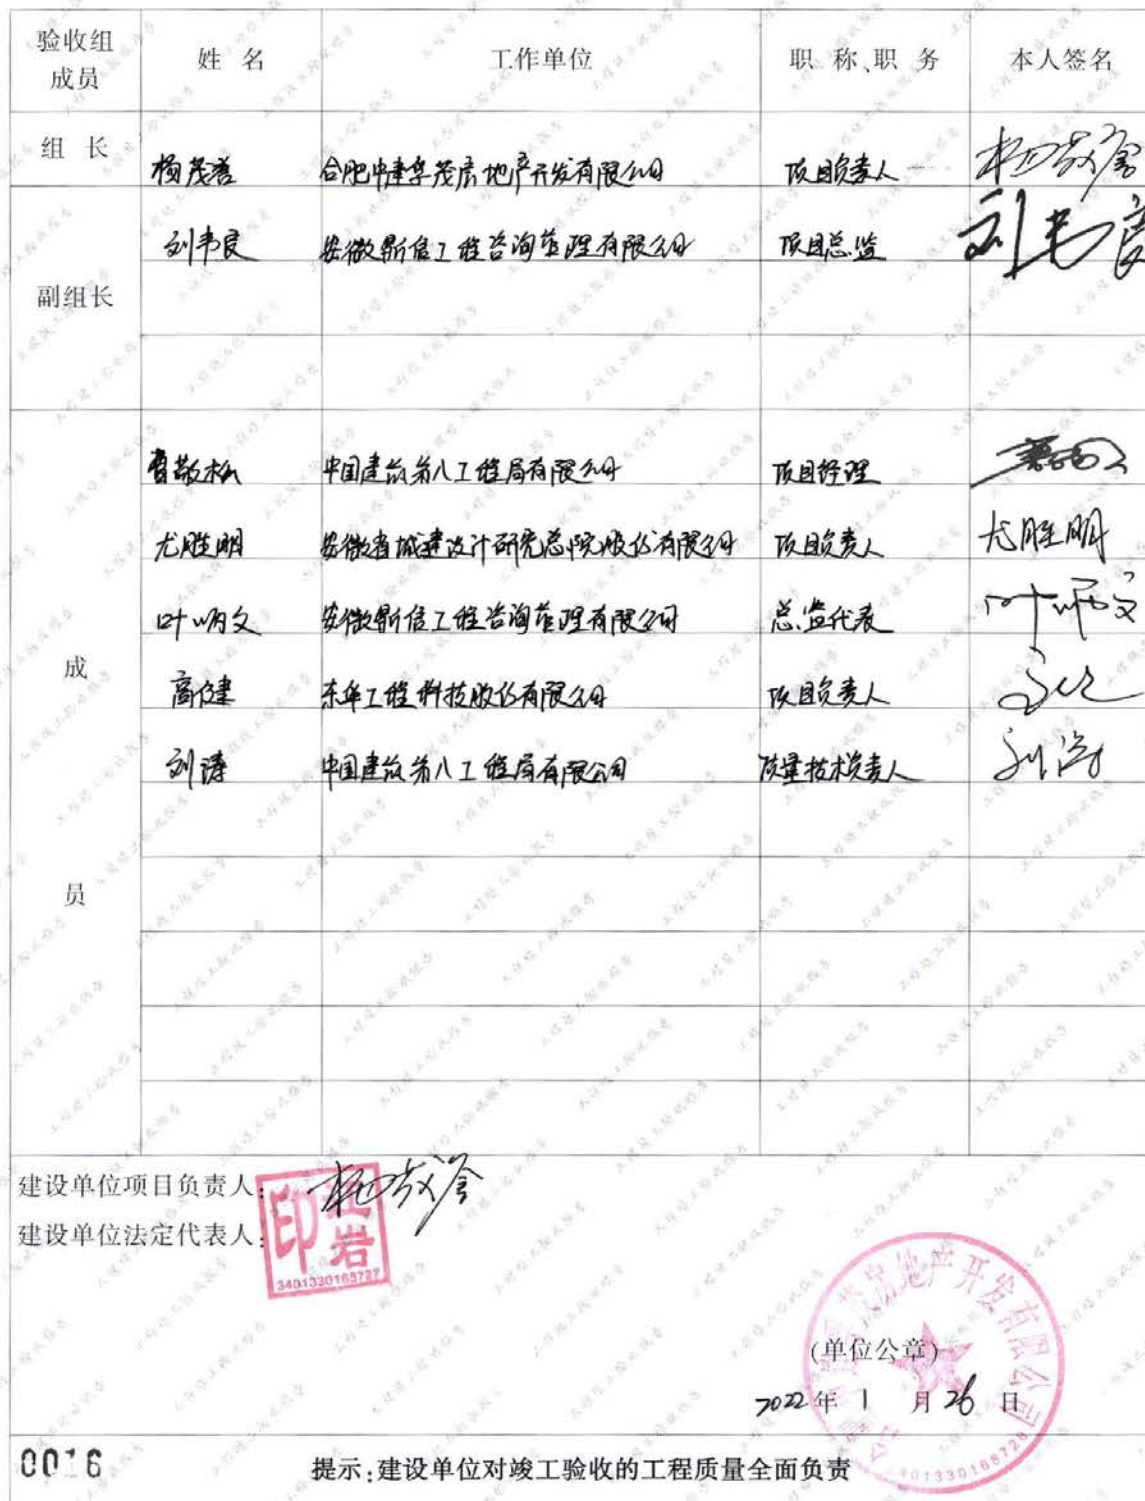 验收组
成员
姓 名
工作单位
职 称、职 务
本人签名
组 长
杨茂誉
合肥中建孚茂房地产开发有限公司
项目负责人
刘韦良
安徽鼎信工程咨询管理有限公司
项目总监
刘韦良
副组长
曹敬松
中国建筑第八工程局有限公司
项目经理
尤胜明
安徽省城建设计研究总院股份有限公司
项目负责人
尤胜明
叶炳文
安徽鼎信工程咨询管理有限公司
总监代表
叶炳文
成
高健
东华工程科技股份有限公司
项目负责人
刘涛
中国建筑第八工程局有限公司
质量技术负责人
刘涛
员
建设单位项目负责人:
建设单位法定代表人:
印 岩
3401330168727
房地产开发有限公司
(单位公章)
2022年 1 月 26 日
0016
提示:建设单位对竣工验收的工程质量全面负责